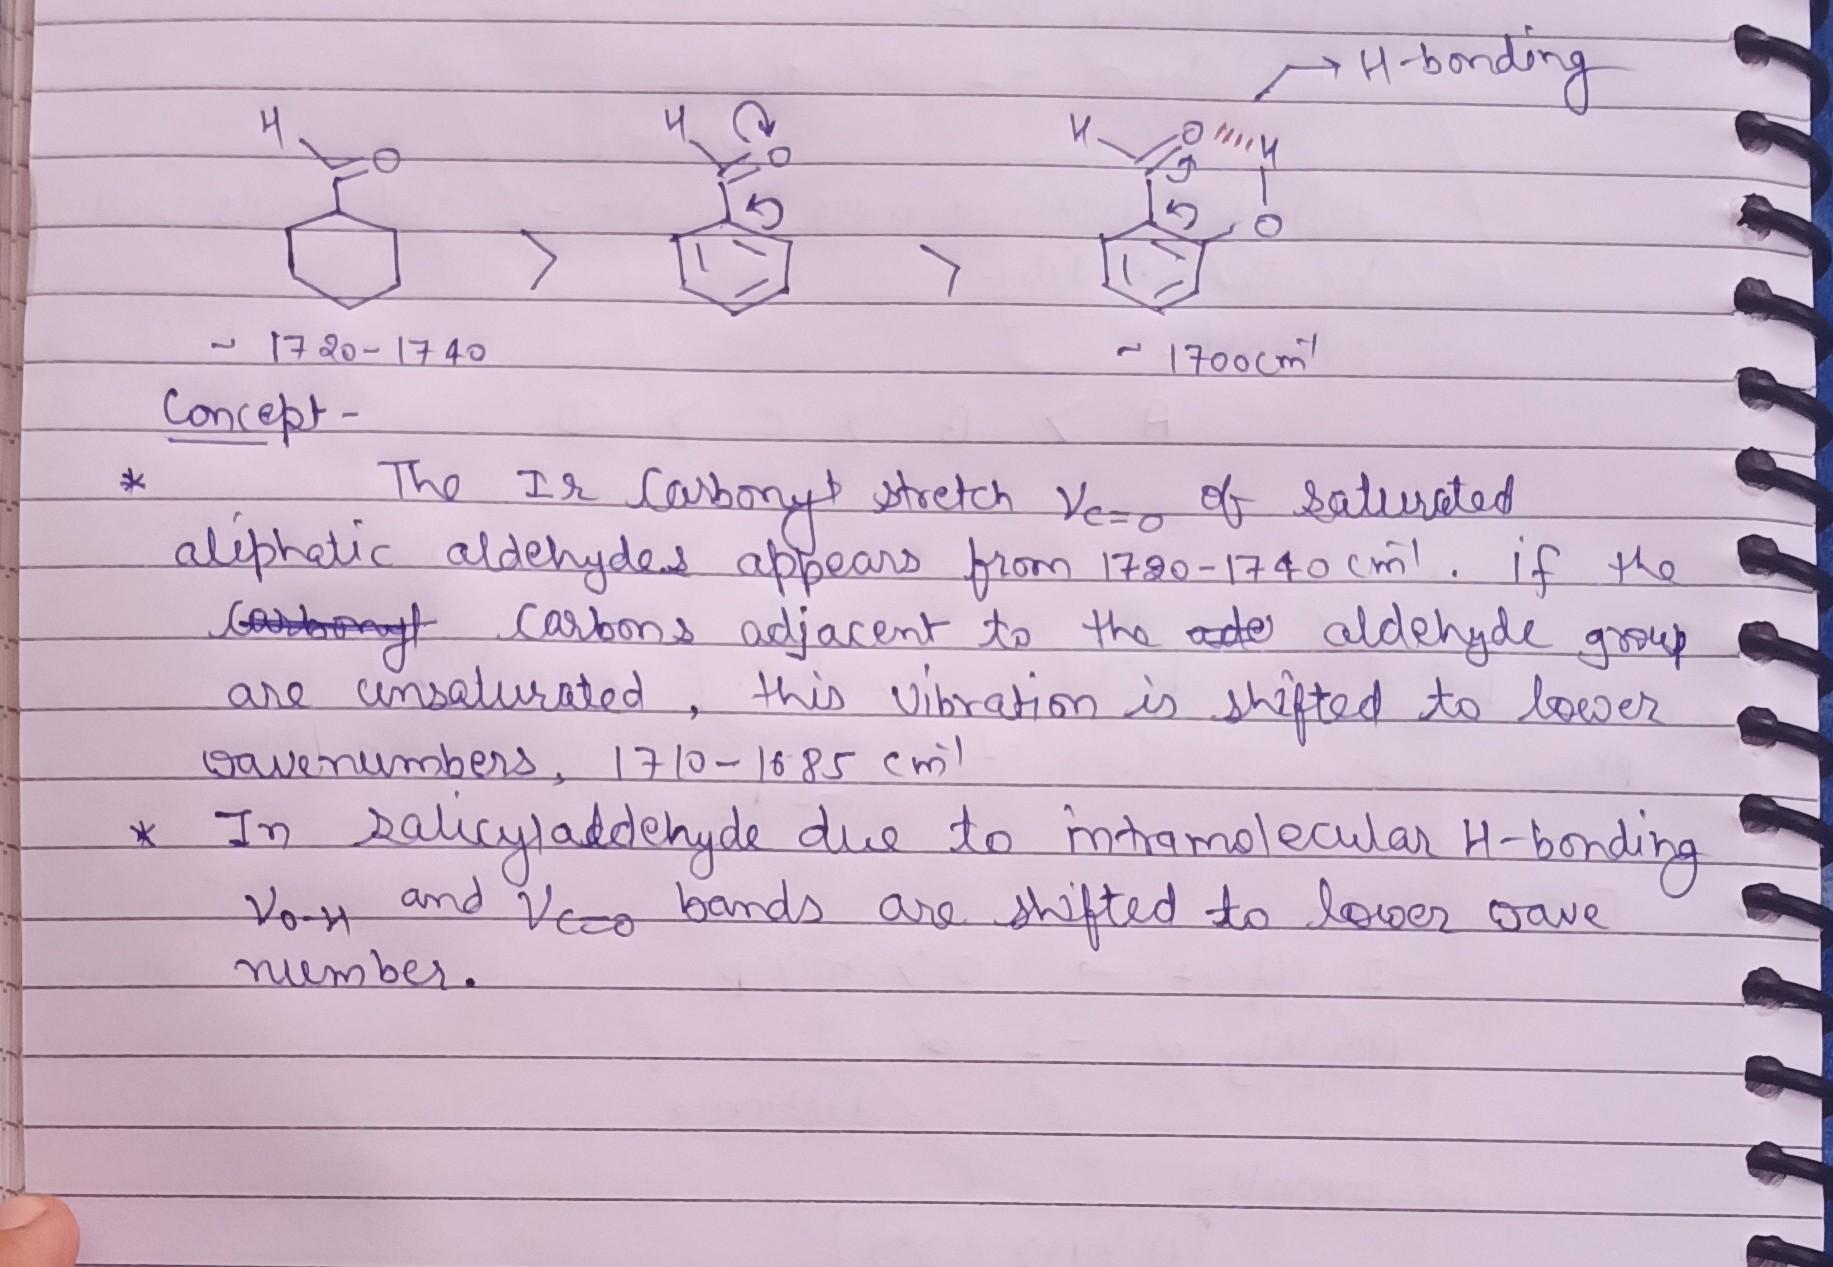 H-bonding
H O H O H O H
O
> >
~ 1720-1740 ~ 1700cm⁻¹
Concept -
* The Ir Carbonyl stretch νC=O of saturated
aliphatic aldehydes appears from 1720-1740 cm⁻¹. if the
carbons adjacent to the aldehyde group
are unsaturated, this vibration is shifted to lower
wavenumbers, 1710-1685 cm⁻¹
* In salicylaldehyde due to intramolecular H-bonding
νO-H and νC=O bands are shifted to lower wave
number.